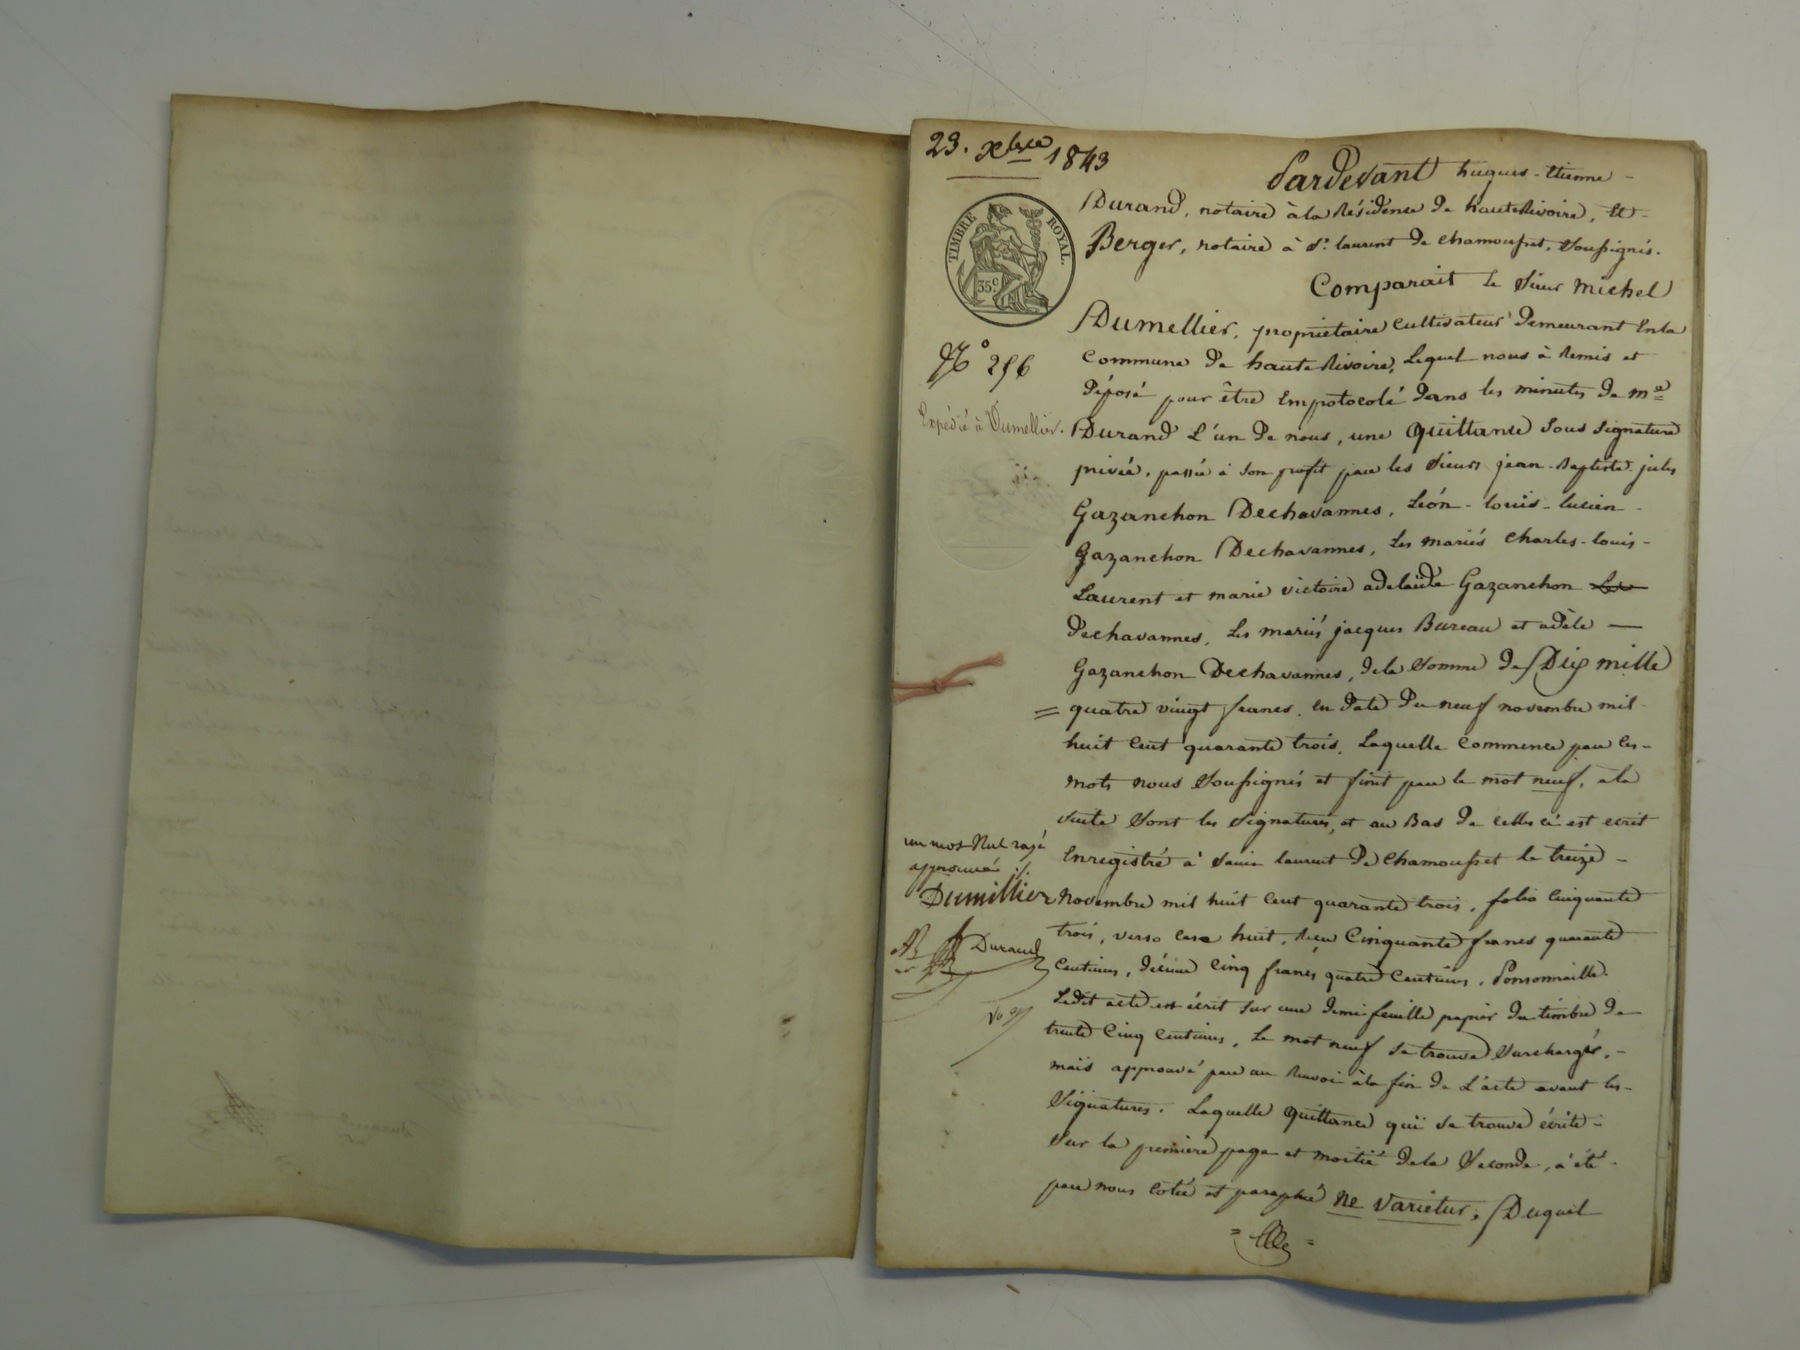 23. Xbre 1843
TIMBRE ROYAL.
35c.
N° 256
Expédié à Dumellier.
Pardevant hugues-Etienne -
Durand, notaire à la Résidence de hauteRivoire, Et -
Berger, notaire à St. laurent de chamousset, soussignés.
Comparait le sieur michel
Dumellier, propriétaire cultivateur demeurant En la
commune de haute Rivoire, lequel nous à Remis et
déposé pour être Empotocolé dans les minutes de me
Durand L'un de nous, une Quittance sous signature
privée, passée à son profit par les sieurs jean-Baptiste-jules
Gazanchon Dechavannes, Léon-louis-lucien -
Gazanchon Dechavannes, les mariés charles-louis-
Laurent et marie victoire adelaïde Gazanchon
dechavannes, les mariés jacques Bureau et adèle —
Gazanchon Dechavannes, de la somme de Dix mille
= quatre vingt francs, en date du neuf novembre mil
huit cent quarante trois, Laquelle commence par les -
mots nous soussignés et finit par le mot neuf, à la
suite sont les signatures, et au Bas de celles ci est ecrit
Enregistré à saint laurent de chamousset le treize -
novembre mil huit cent quarante trois, folio cinquante
trois, verso case huit, Recu Cinquante francs quarante
centimes, décime cinq francs quatre centimes, Ponsonnaille.
Ledit acte est écrit sur une demi-feuille papier du timbre de
trente Cinq centimes, Le mot neuf se trouve surchargé, -
mais approuvé par un Renvoi à la fin de L'acte avant les -
signatures. Laquelle Quittance qui se trouve écrite -
sur la première page et moitié de la seconde, a été -
par nous cotée et paraphée Ne Varietur, Duquel
un mot Nul rayé
approuvé ./.
Dumillier
Durand